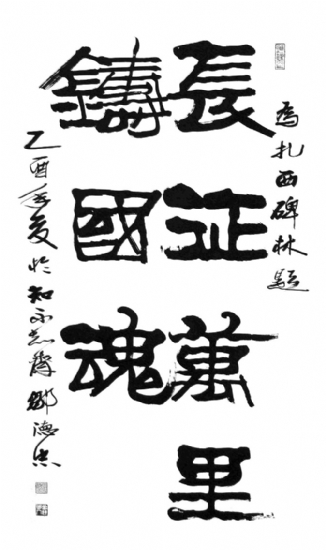 為扎西碑林題
長征萬里
鑄國魂
乙酉年夏於知不足齋鄒德忠